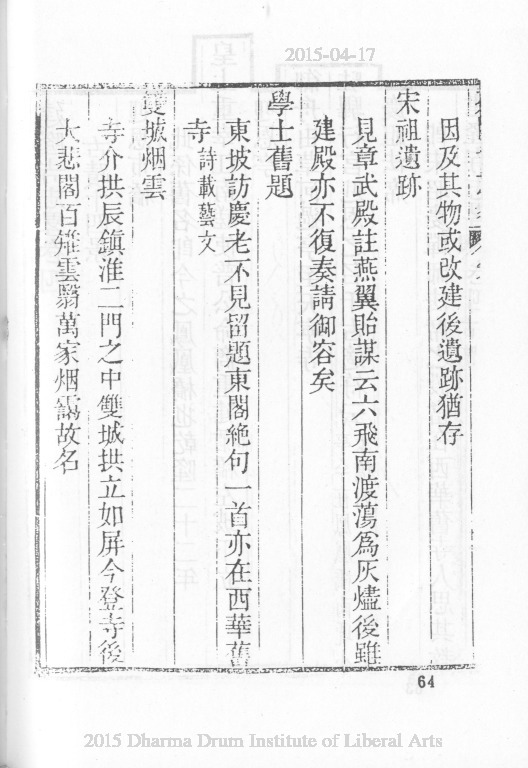 2015-04-17
因及其物或改建後遺跡猶存
宋祖遺跡
見章武殿註燕翼貽謀云六飛南渡蕩爲灰燼後雖
建殿亦不復奏請御容矣
學士舊題
東坡訪慶老不見留題東閣絶句一首亦在西華舊
寺詩載藝文
雙城烟雲
寺介拱辰鎮淮二門之中雙城拱立如屏今登寺後
大悲閣百雉雲翳萬家烟靄故名
64
2015 Dharma Drum Institute of Liberal Arts